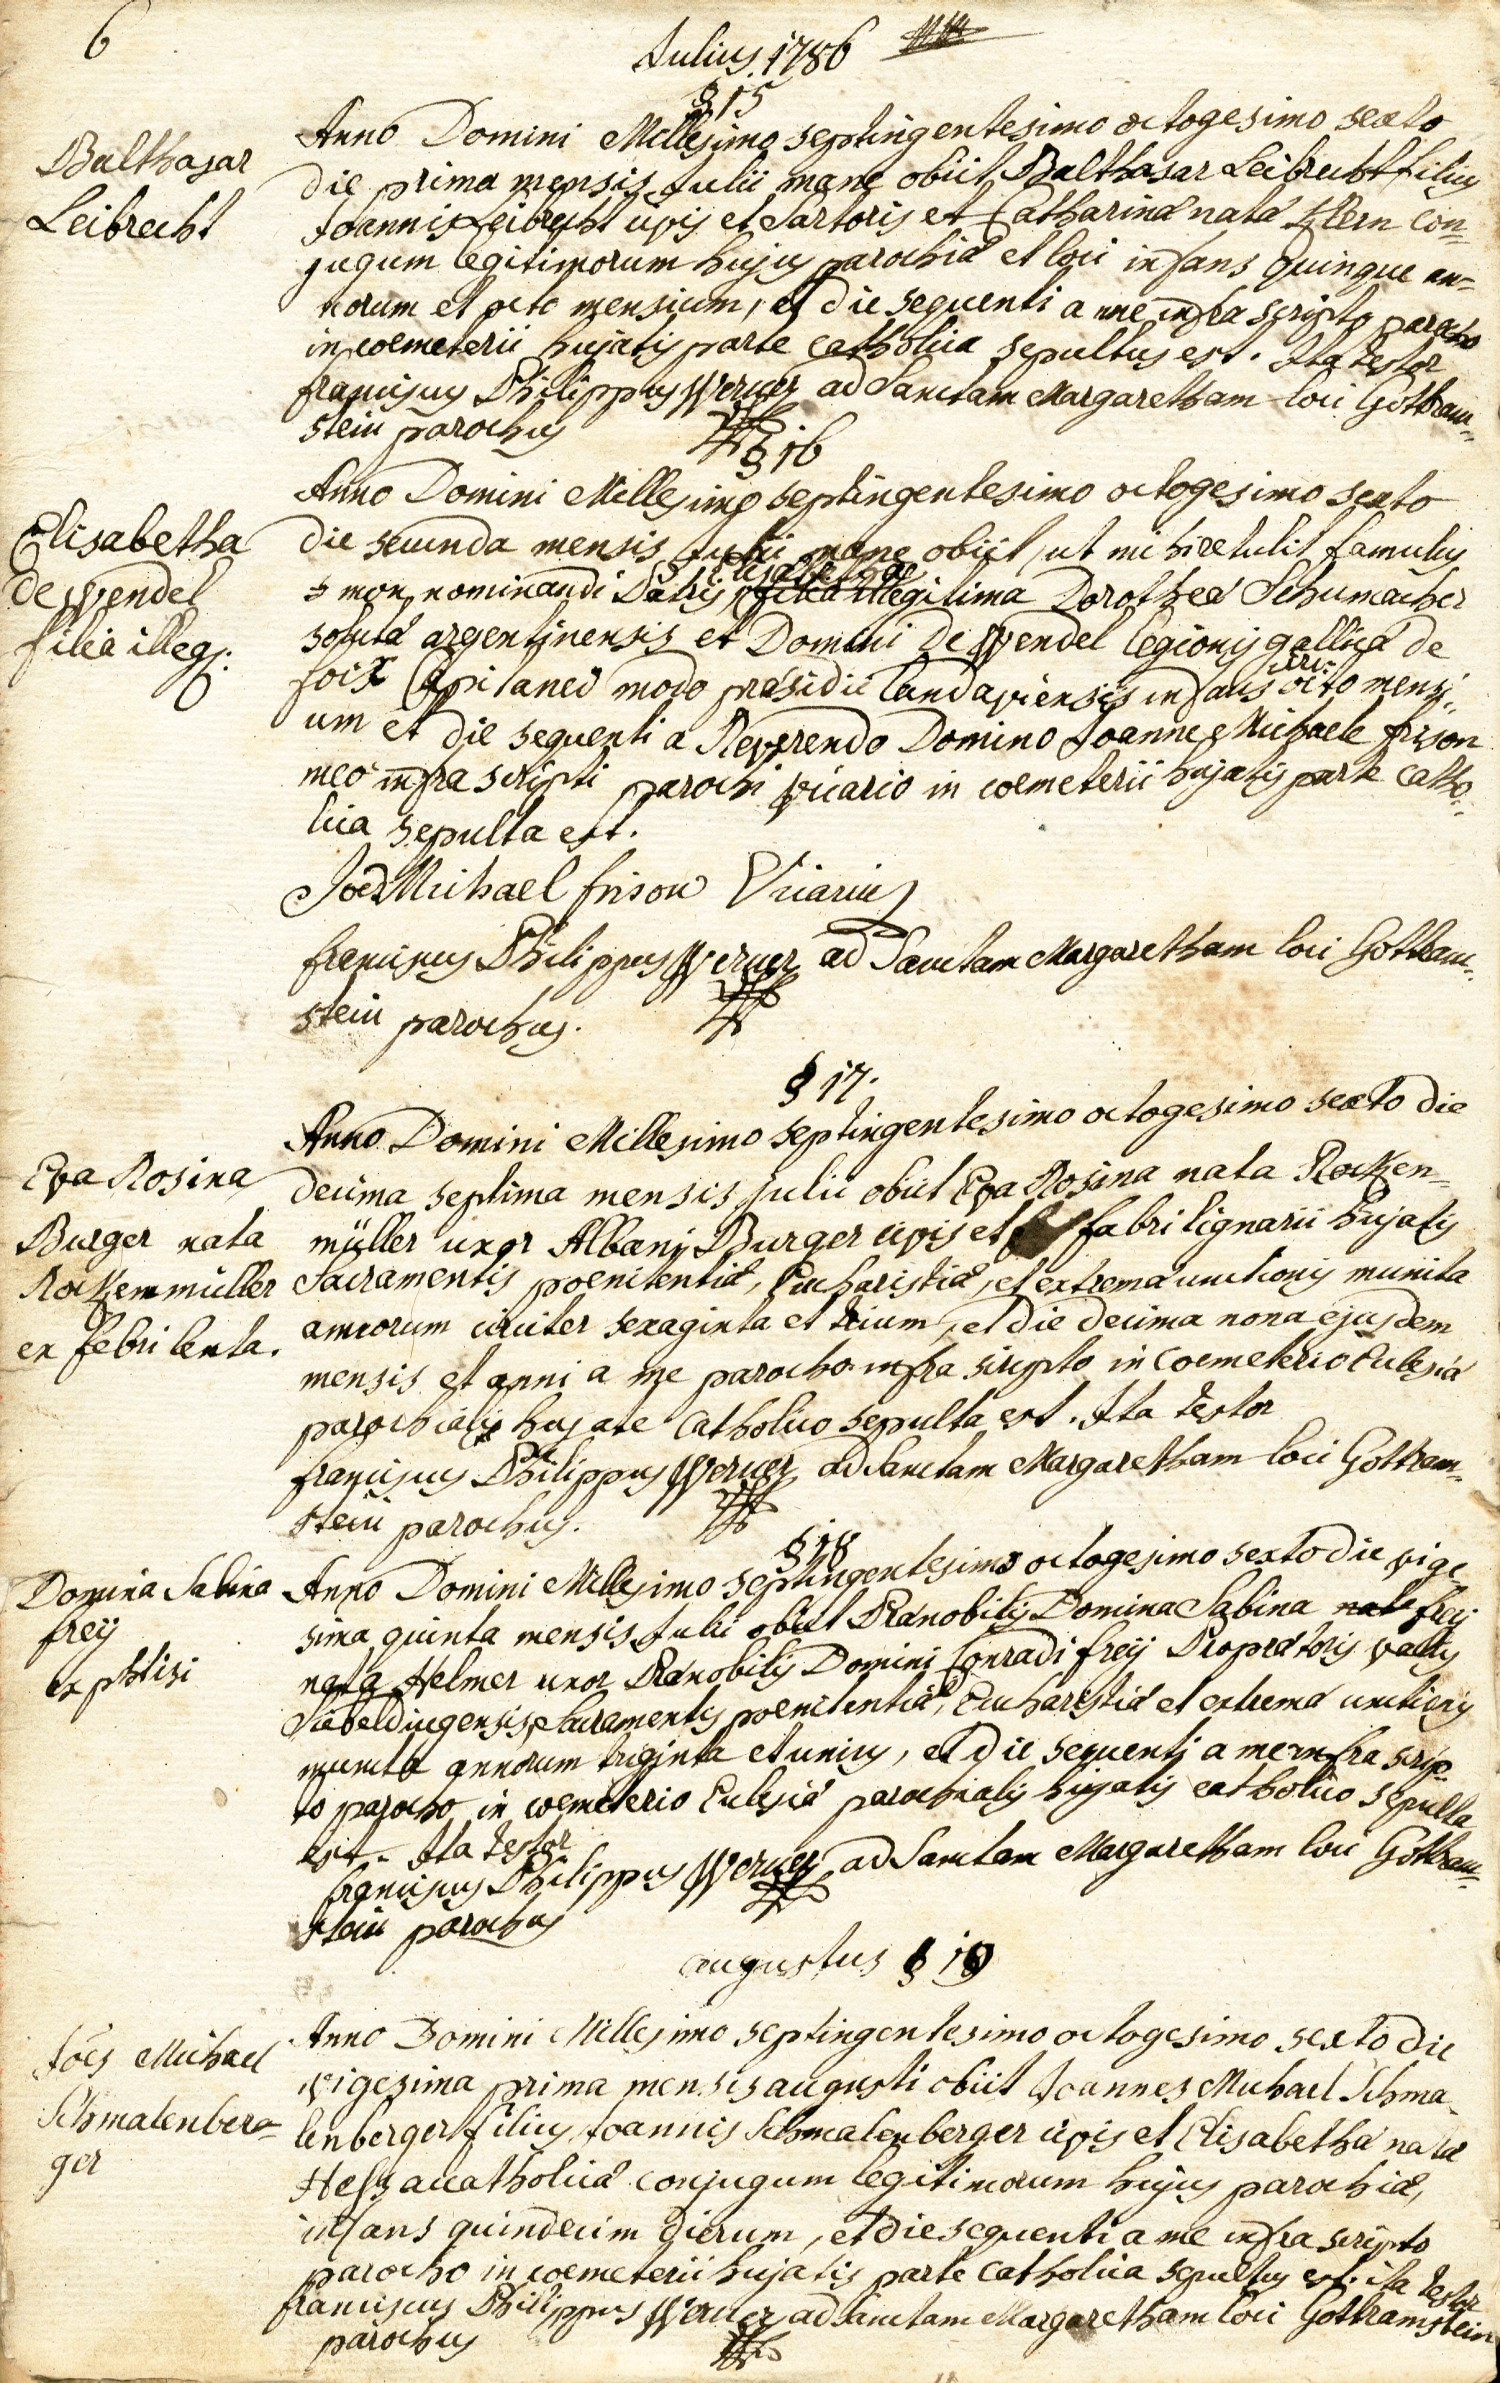 6
Julius 1786
§ 15
Balthasar
Leibrecht
Anno Domini Millesimo septingentesimo octogesimo sexto
die prima mensis Julii mane obiit Balthasar Leibrecht filius
Joannis Leibrecht civis et Sartoris et Catharinæ natæ Stern con=
jugum legitimorum hujus parochiæ et loci infans quinque an=
norum et octo mensium, et die sequenti a me infra scripto parocho
in coemeterii hujatis parte catholica sepultus est. Ita testor
franciscus Philippus Werner ad Sanctam Margaretham loci Gottram=
stein parochus
§ 16
Elisabetha
de Wendel
filia illeg:
Anno Domini Millesimo septingentesimo octogesimo sexto
die secunda mensis Julii mane obiit, ut mihi retulit famulus
mox nominandi Patris, Elisabetha filia illegitima Dorotheæ Schumacher
solutæ argentinensis et Domini de Wendel legionis gallicæ de
foix Capitanei modo præsidii landaviensis infans octo mensi=
um et die sequenti a Reverendo Domino Joanne Michaele frison
meo infra scripti parochi vicario in coemeterii hujatis parte catho=
lica sepulta est.
Joes Michael frison Vicarius
franciscus Philippus Werner ad Sanctam Margaretham loci Gottram=
stein parochus.
§ 17.
Eva Rosina
Burger nata
Rockenmüller
ex febri lenta.
Anno Domini Millesimo septingentesimo octogesimo sexto die
decima septima mensis Julii obiit Eva Rosina nata Rocken=
müller uxor Albani Burger civis et fabri lignarii hujatis
Sacramentis poenitentiæ, Eucharistiæ, et extremæ unctionis munita
annorum circiter sexaginta et trium, et die decima nona ejusdem
mensis et anni a me parocho infra scripto in Coemeterio Ecclesiæ
parochialis hujate Catholico sepulta est. Ita testor
franciscus Philippus Werner ad Sanctam Margaretham loci Gottram=
stein parochus.
§ 18
Domina Sabina
freÿ
ex phtisi
Anno Domini Millesimo septingentesimo octogesimo sexto die vige
sima quinta mensis Julii obiit Prænobilis Domina Sabina nata freÿ
nata Helmer uxor Prænobilis Domini Conradi freÿ Propretoris vallis
Siebeldingensis, Sacramentis poenitentiæ, Eucharistiæ et extremæ unctionis
munita annorum triginta et unius, et die sequenti a me infra scrip=
to parocho in coemeterio Ecclesiæ parochialis hujatis catholico sepulta
est. Ita testor
franciscus Philippus Werner ad Sanctam Margaretham loci Gottram=
stein parochus
augustus § 19
Joes Michael
Schmalenber=
ger
Anno Domini Millesimo septingentesimo octogesimo sexto die
vigesima prima mensis augusti obiit Joannes Michael Schma=
lenberger filius Joannis Schmalenberger civis et Elisabetha nata
Hess acatholicæ conjugum legitimorum hujus parochiæ,
infans quindecim dierum, et die sequenti a me infra scripto
parocho in coemeterii hujatis parte catholica sepultus est. ita testor
franciscus Philippus Werner ad Sanctam Margaretham loci Gottramstein
parochus